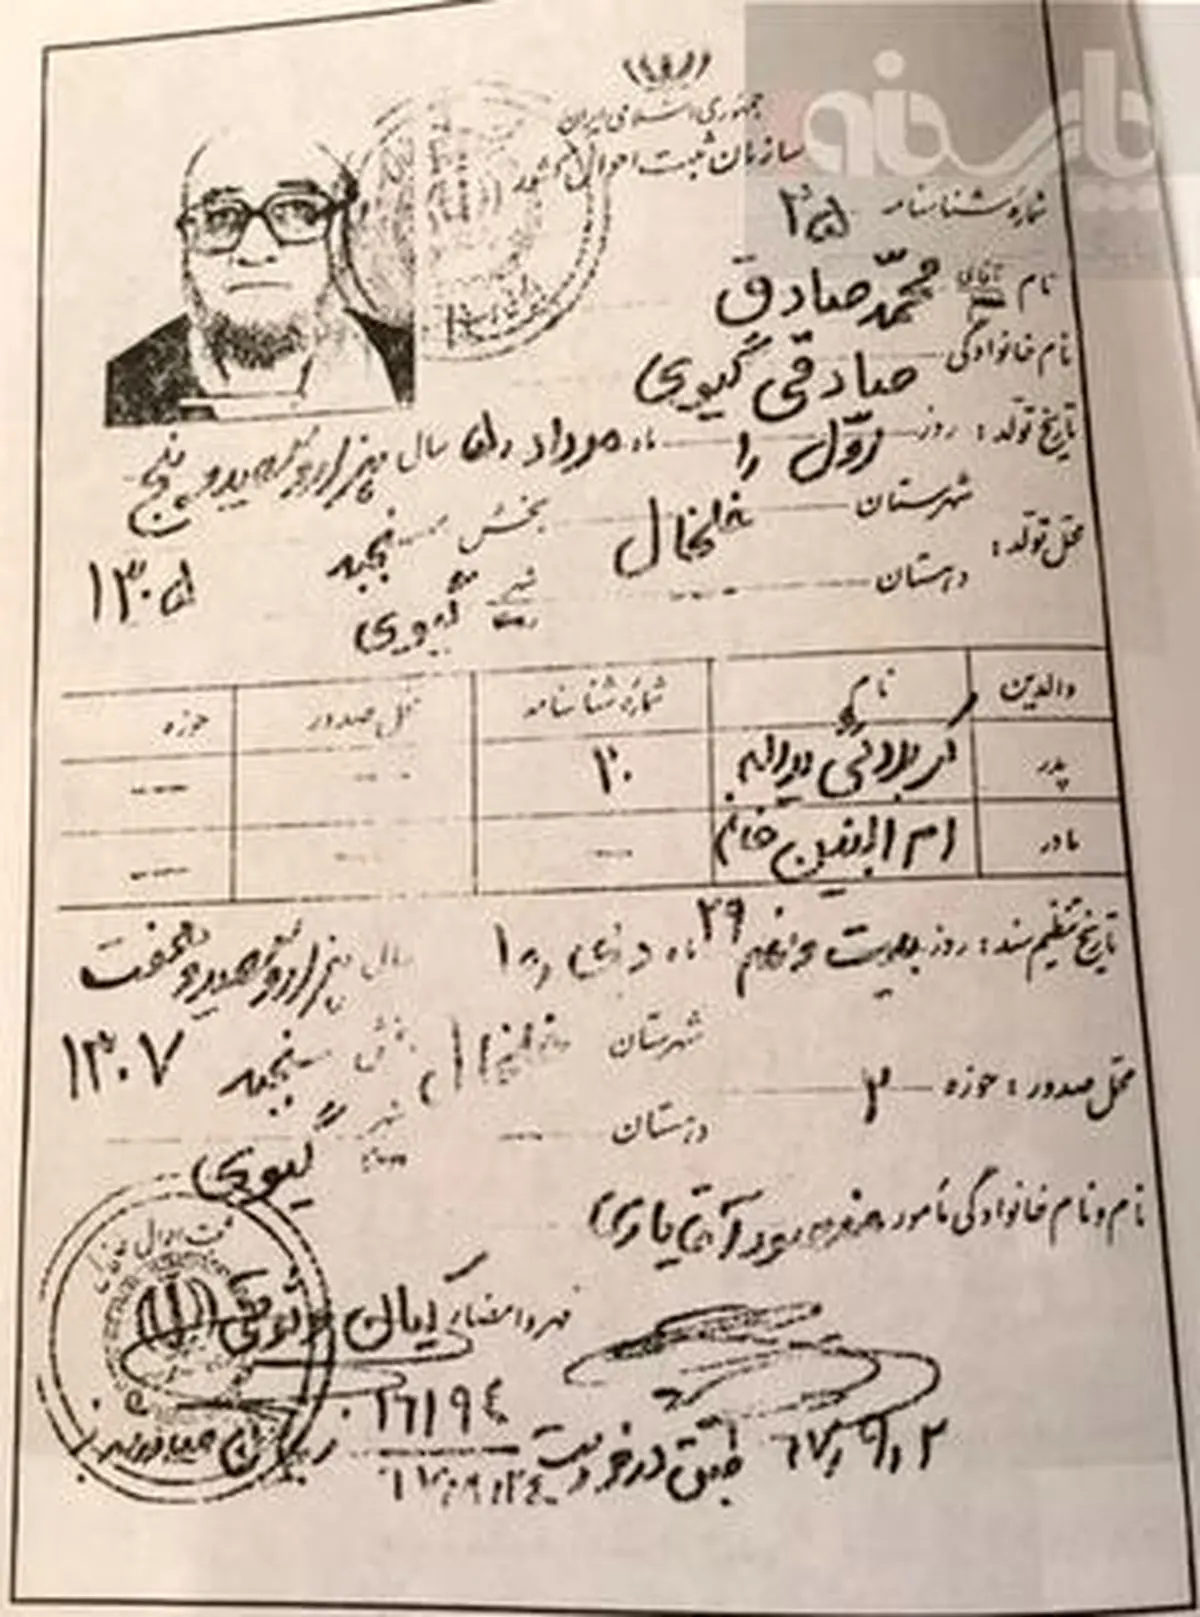 پارسینه
جمهوری اسلامی ایران
سازمان ثبت احوال کشور
شماره شناسنامه ۲۵
نام آقای محمّد صادق
نام خانوادگی صادقی گیوی
تاریخ تولد: روز اوّل ۱ ماه مرداد ۵ سال هزار و سیصد و پنج
۱۳۰۵
محل تولد: شهرستان خلخال بخش سنجبد
دهستان --- شهر گیوی
والدین نام شماره شناسنامه محل صدور حوزه
پدر کربلائی ۲۰ -- ---
مادر ام البنین خانم -- -- ---
تاریخ تنظیم سند: روز بیست و نهم ۲۹ ماه دی ۱۰ سال هزار و سیصد و هفت
۱۳۰۷
محل صدور: حوزه ۲ شهرستان خلخال بخش سنجبد
دهستان --- شهر گیوی
نام و نام خانوادگی مامور
مهر و امضاء
طبق درخواست
۶۷/۹/۲